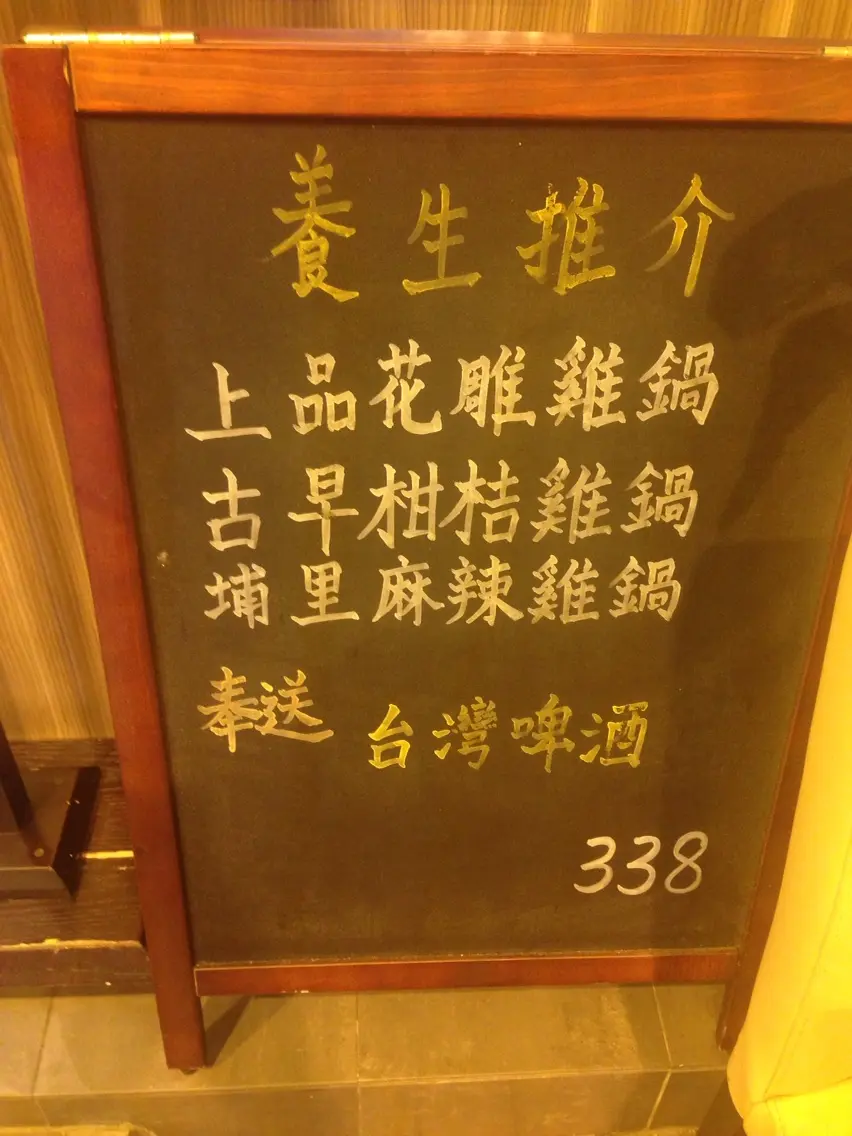 養生推介
上品花雕雞鍋
古早柑桔雞鍋
埔里麻辣雞鍋
奉送 台灣啤酒
338